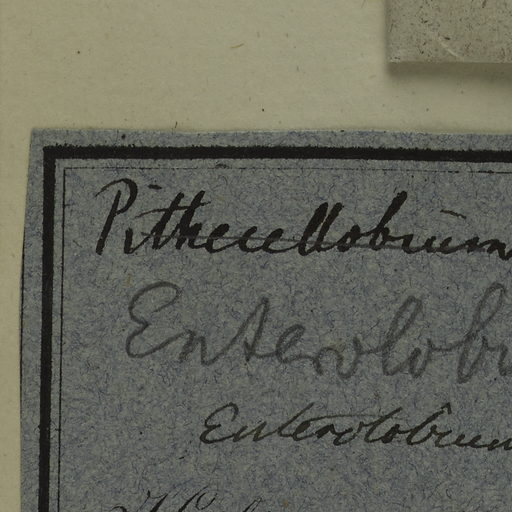 Pithecellobium
Enterolob
Enterolobium